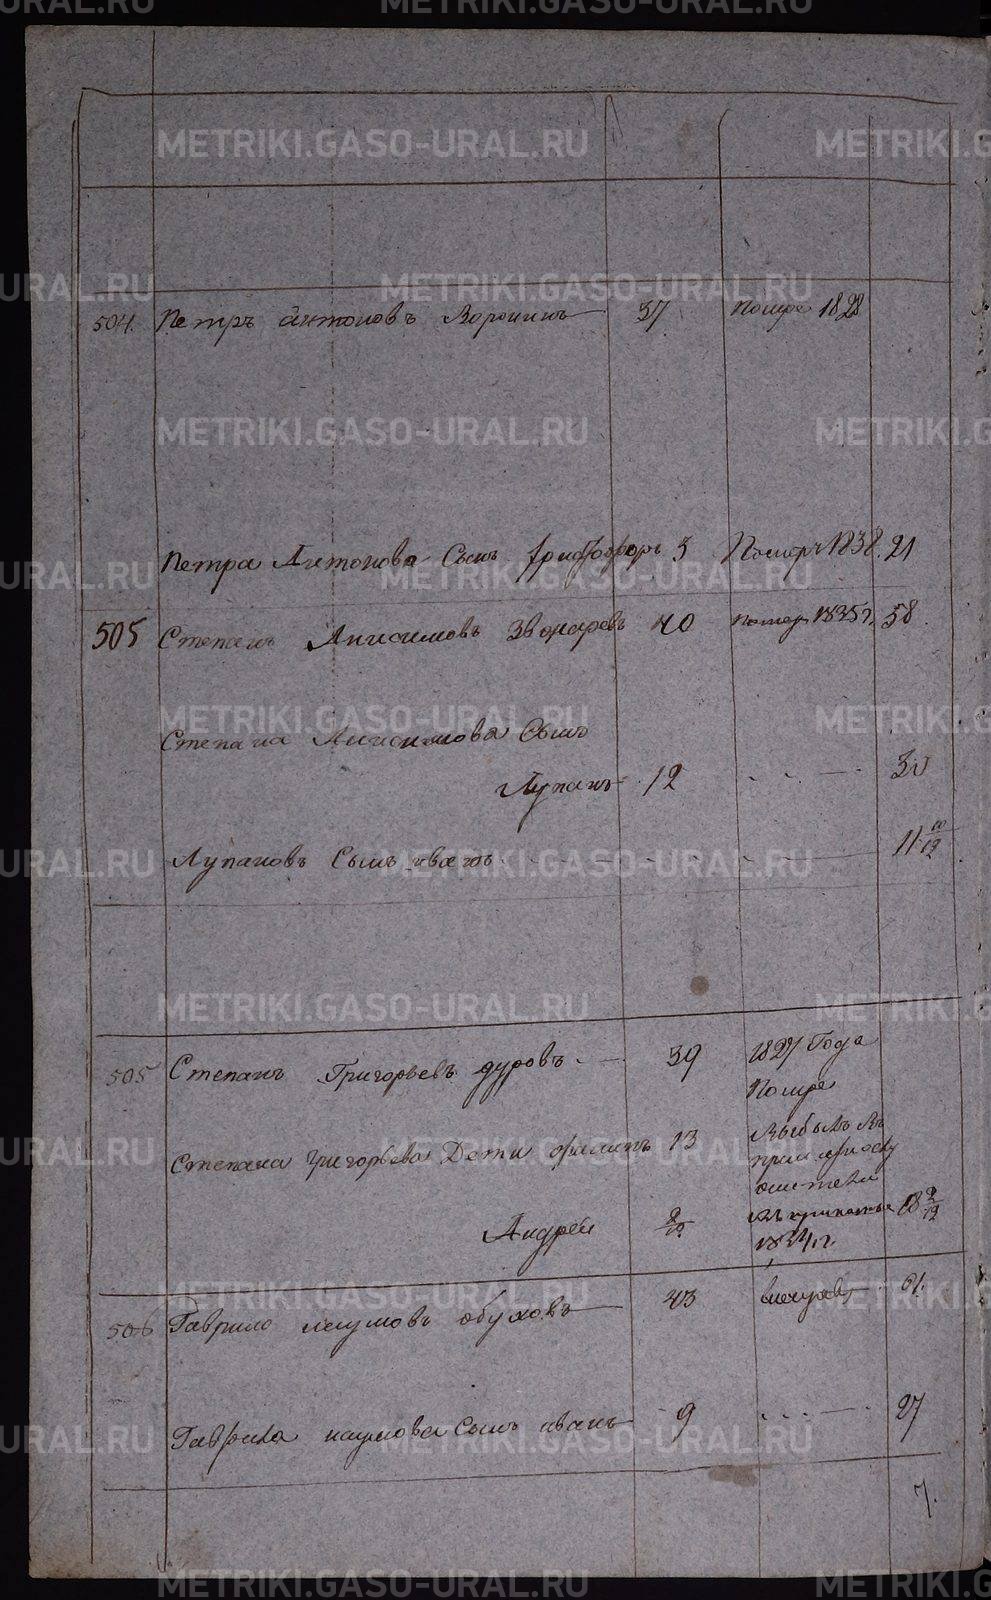 504. Петръ Антоновъ Воронинъ 37 Помре 1828
Петра Антонова Сынъ 3 Помер 1838. 21
505 Степанъ Анисимовъ Звонаревъ 40 помер 1835г. 58.
Степана Анисимова Сынъ
Лупанъ 12 30
Лупановъ Сынъ иванъ 11 10/12
505 Степанъ Григорьевъ дуровъ 39 1827 Года
Помре
Степана григорьева Дети 13 Выбылъ въ
Андреи 18 2/12
506 Гаврило наумовъ обуховъ 43 61.
Гаврила наумова Сынъ иванъ 9 27
7.
METRIKI.GASO-URAL.RU